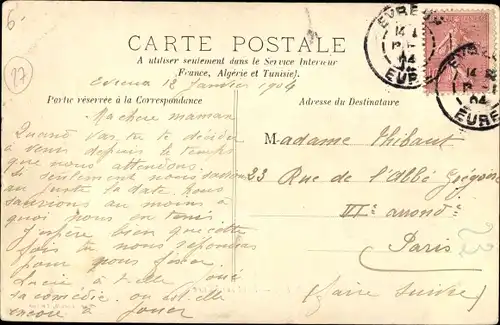 6.-
27
CARTE POSTALE
A utiliser seulement dans le Service Intérieur
(France, Algérie et Tunisie).
Evreux 12 Janvier 1904
Partie réservée à la Correspondance
Adresse du Destinataire
Ma chère maman
Quand vas-tu te décider
à venir depuis le temps
que nous attendons.
Si seulement nous savions
au juste la date, nous
saurions au moins à
quoi nous en tenir.
J'espère bien que cette
fois tu nous répondras
pour nous fixer.
Lucie a-t-elle joué
sa comédie ou
encore à jouer
Madame Thibaut
23 Rue de l'Abbé Grégoire
VI e arrond t
Paris
(Faire suivre)
EVREUX
04
EURE
EVREUX
04
EURE